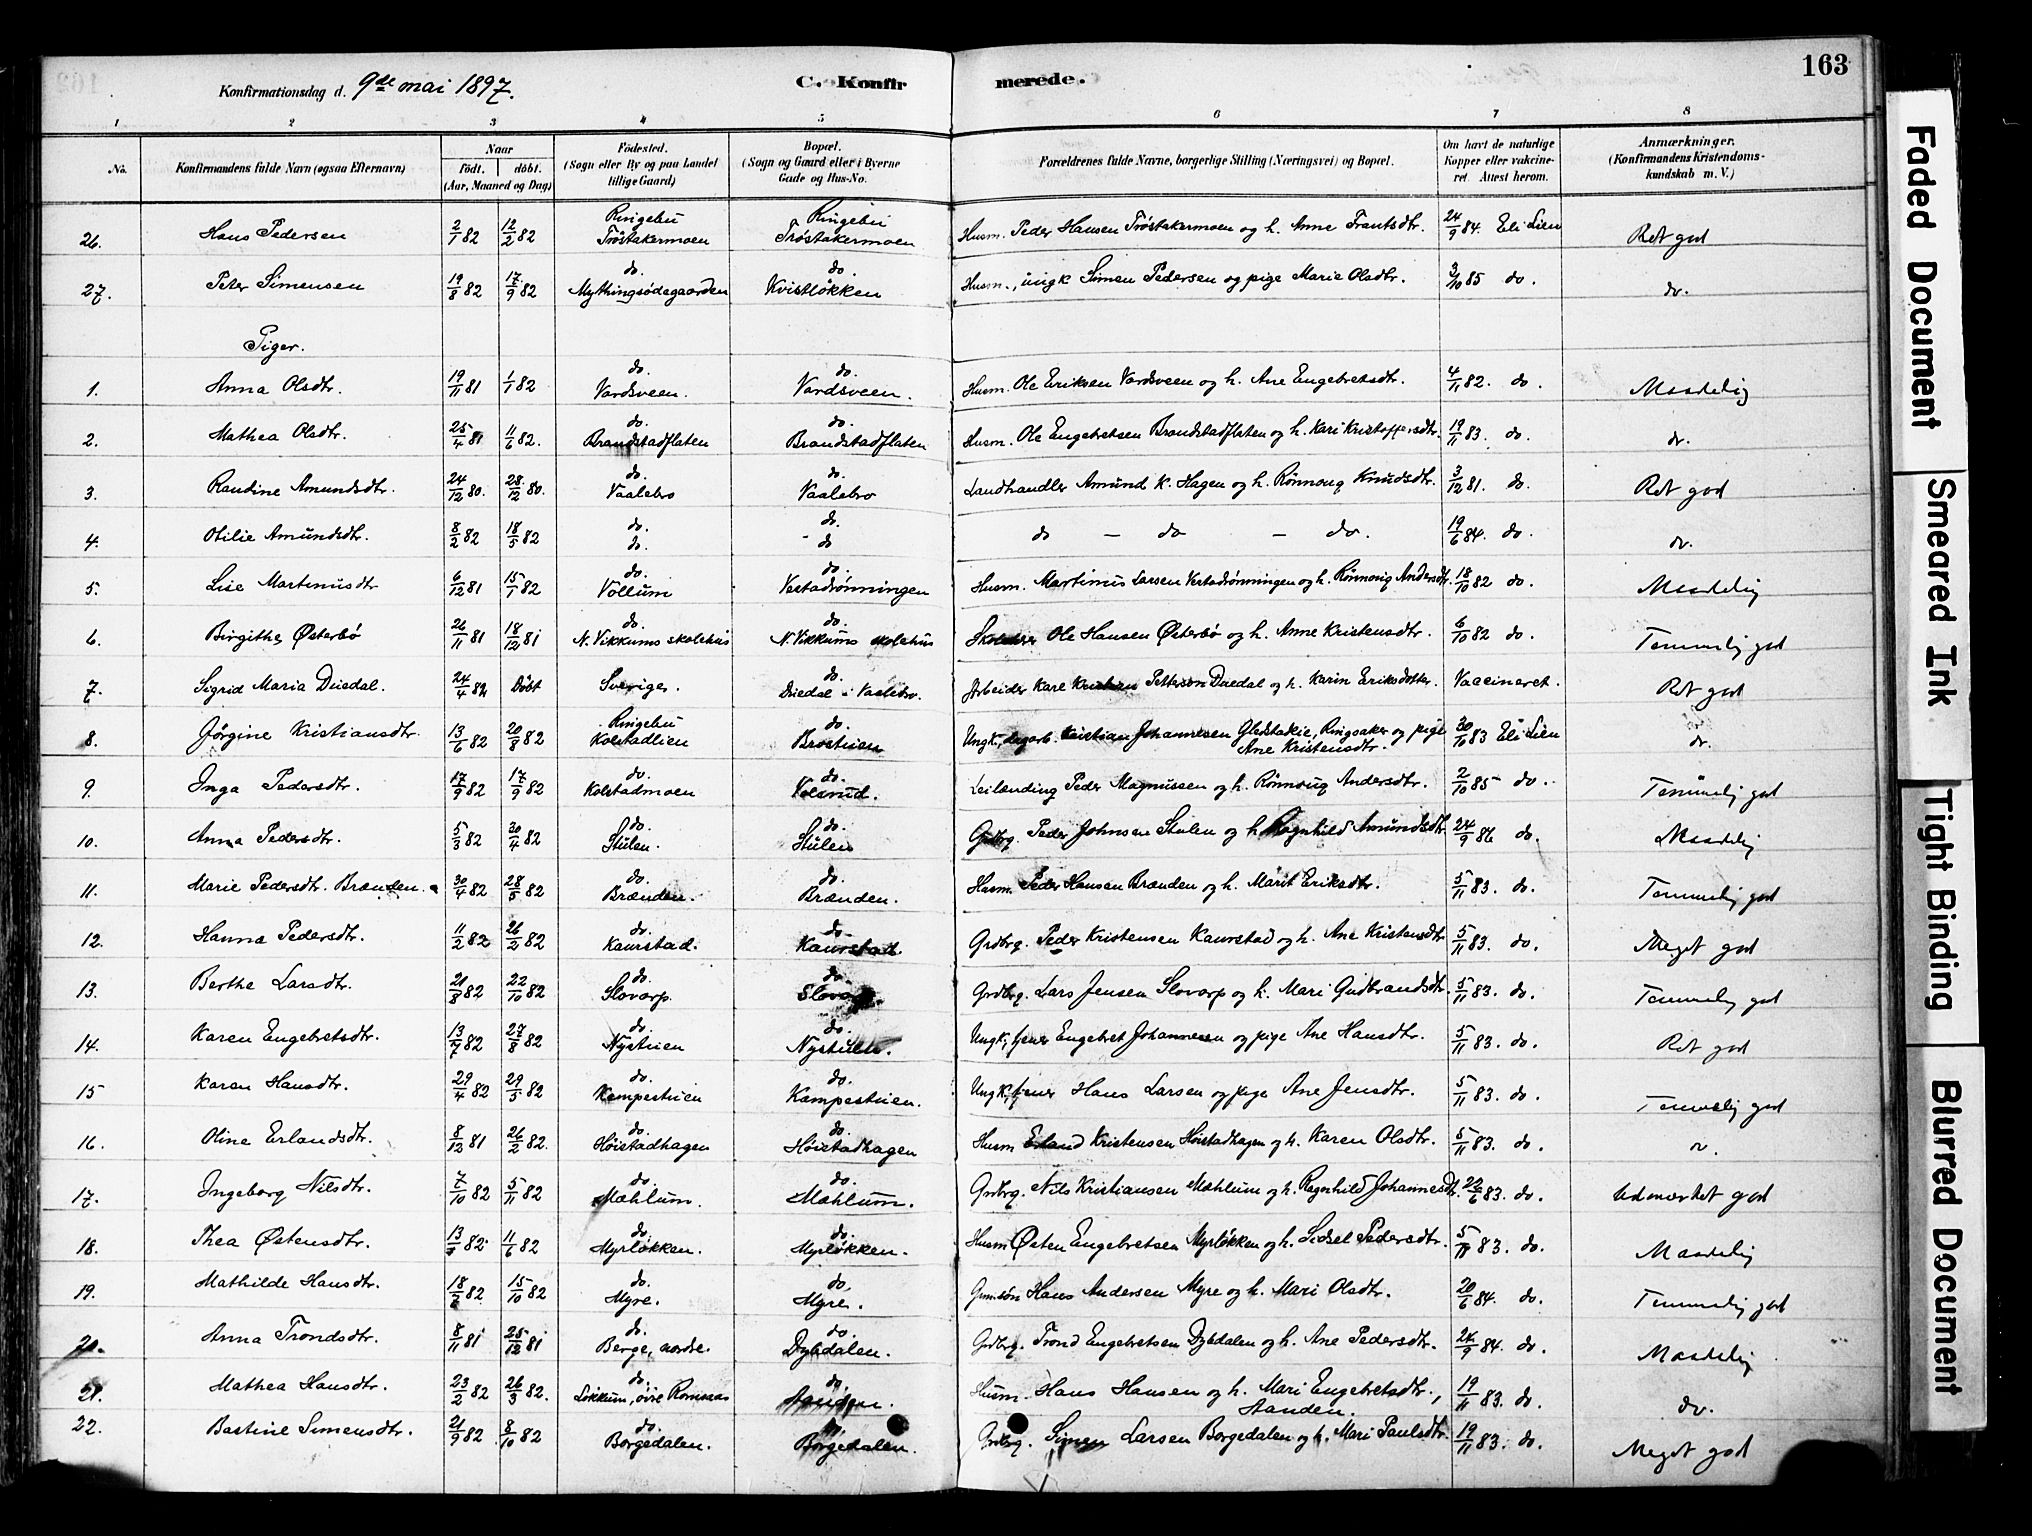 163
Konfirmationsdag d. 9de mai 1897.
C. Konfirmerede.
1 2 3 4 5 6 7 8
No.
Konfirmandens fulde Navn (ogsaa Efternavn)
Naar
født. døbt.
(Aar, Maaned og Dag)
Fødested.
(Sogn eller By og paa Landet
tillige Gaard)
Bopæl.
(Sogn og Gaard eller i Byerne
Gade og Hus-No.
Forældrenes fulde Navne, borgerlige Stilling (Næringsvei) og Bopæl.
Om havt de naturlige
Kopper eller vakcine-
ret. Attest herom.
Anmærkninger.
(Konfirmandens Kristendoms-
kundskab m. V.)
26. Hans Pedersen 2/1 82 12/2 82 Ringebu Trøstakermoen Ringebu Trøstakermoen Husm. Peder Hansen Trøstakermoen og h. Anne Frantsdtr. 24/9 84. Eli Lien Ret god
27. Peter Simensen 19/8 82 17/9 82 do. Mythingsødegaarden do. Kvistløkken Husm., ungk Simen Pedersen og pige Marie Olsdtr. 3/10 85 do. do.
Piger.
1. Anna Olsdtr. 19/11 81 1/1 82 do. Vardsveen. do. Vardsveen. Husm. Ole Eriksen Vardsveen og h. Ane Engebretsdtr. 4/11 82. do. Maadelig
2. Mathea Olsdtr. 25/4 81 11/6 82. do. Brandstadflaten do. Brandstadflaten Husm. Ole Engebretsen Brandstadflaten og h. Kari Kristoffersdtr. 19/11 83. do. do.
3. Randine Amundsdtr. 24/12 80. 28/12 80. do. Vaalebro do. Vaalebro Landhandler Amund K. Hagen og h. Rønnoug Knudsdtr. 3/12 81. do. Ret god
4. Otilie Amundsdtr. 8/2 82 18/5 82 do. do. do. - do do - do - do. 19/6 84. do. do.
5. Lise Martinusdtr 6/12 81 15/1 82 do. Vollum do. Vestadrønningen Husm. Martinus Larsen Vestadrønningen og h. Rønnoug Andersdtr. 18/10 82 do. Maadelig
6. Birgithe Østerbø 26/11 81 18/12 81 do. N. Vikkums skolehus do. N. Vikkums skolehus Ole Hansen Østerbø og h. Anne Kristensdtr. 6/10 82 do. Temmelig god
7. Sigrid Maria Duedal. 24/4 82 Døbt Sverige. do. Duedal i Vaalebro. Arbeider Karl Kristian Petterson Duedal og h. Karin Eriksdotter. Vaccineret. Ret god
8. Jørgine Kristiansdtr. 13/6 82 20/8 82 Ringebu Kolstadlien do. Brostuen Ungk., dagarb. Kristian Johannesen Ringsaker og pige Ane Kristensdtr. 30/10 83 Eli Lien do.
9. Inga Pedersdtr. 17/9 82 17/9 82 do. Kolstadmoen do. Leilænding Peder Magnussen og h. Rønnoug Andersdtr. 2/10 85 do. Temmelig god
10. Anna Pedersdtr. 5/3 82 30/4 82 do. Stulen. do. Stulen Grdbrg. Peder Johnsen Stulen og h. Ragnhild Amundsdtr. 24/9 86 do. Maadelig
11. Marie Pedersdtr. Brænden. 30/4 82 28/5 82 do. Brænden. do. Brænden. Husm. Peder Hansen Brænden og h. Marit Eriksdtr. 5/11 83. do. Temmelig god
12. Hanna Pedersdtr. 11/2 82 26/2 82 do. Kaurstad. do. Kaurstad. Grdbrg. Peder Kristensen Kaurstad og h. Ane Kristensdtr 5/11 83. do. Meget god
13. Berthe Larsdtr. 21/8 82 22/10 82 do. Slovarp. do. Slovarp Grdbrg. Lars Jensen Slovarp og h. Mari Gudbrandsdtr. 5/11 83. do. Temmelig god
14. Karen Engebretsdtr. 13/7 82 27/8 82 do. Nystuen do. Nystuen. Ungk., tjener Engebret Johannesen og pige Ane Hansdtr. 5/11 83. do. Ret god
15 Karen Hansdtr. 29/4 82 29/5 82 do. Kampestuen do. Kampestuen. Ungk., tjener Hans Larsen og pige Ane Jensdtr. 5/11 83. do. Temmelig god
16. Oline Erlandsdtr. 8/12 81 26/2 82. do. Høistadhagen do. Høistadhagen Husm. Erland Kristensen Høistadhagen og h. Karen Olsdtr. 5/11 83. do. do.
17. Ingeborg Nilsdtr. 7/10 82 5/11 82 do. Mæhlum. do. Mæhlum. Grdbrg. Nils Kristiansen Mæhlum og h. Ragnhild Johannesdtr. 22/6 83. do. Udmærket god
18. Thea Østensdtr. 82 11/6 82 do. Myrløkken. do. Myrløkken. Husm. Østen Engebretsen Myrløkken og h. Sidsel Pedersdtr. 5/11 83. do. Maadelig
19. Mathilde Hansdtr. 82 15/10 82 do. Myre. do. Myre. Hans Andersen Myre og h. Mari Olsdtr. 20/6 84. do. Temmelig god
20. Anna Trondsdtr. 8/11 81 25/12 81 do. Berge, nordre. do. Dybdalen. Grdbrg. Trond Engebretsen Dybdalen og h. Ane Pedersdtr. 24/9 84. do. Maadelig
21. Mathea Hansdtr. 23/2 82 26/3 82. do. Løkkum, øvre do. Aanden. Husm. Hans Hansen og h. Mari Engebretsdtr., Aanden. 19/11 83. do. do.
22. Bastine Simensdtr. 21/9 82 8/10 82 do. Borgedalen. do. Borgedalen. Grdbrg. Simen Larsen Borgedalen og h. Mari Paulsdtr. 19/11 83. do. Meget god
Faded Document
Smeared Ink
Tight Binding
Blurred Document